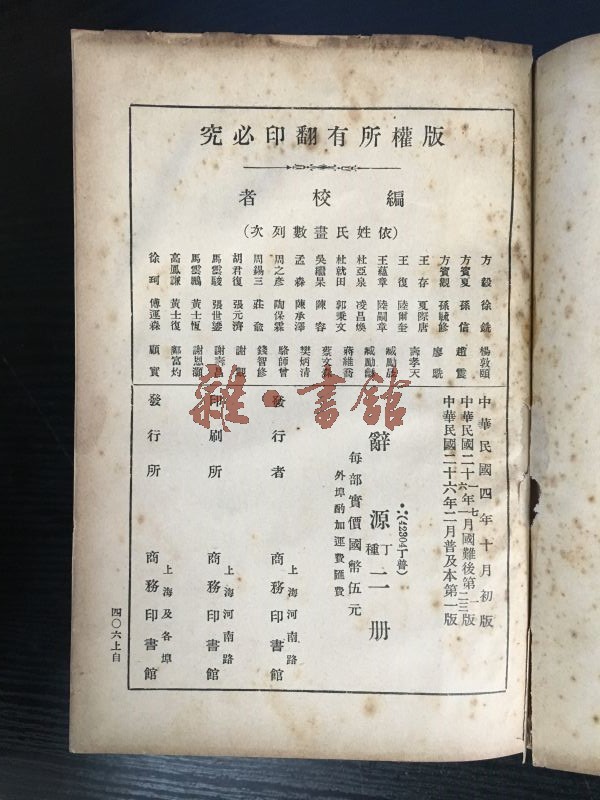 版權所有翻印必究
編校者
（依姓氏畫數列次）
方毅 徐銑 楊敦頤
方賓夏 孫信 趙震
方賓觀 孫毓修 廖
王存 夏際唐
王復 陸爾奎 壽孝天
王蘊章 陸嗣章 臧勵龢
杜亞泉 凌昌煥 臧勵
杜就田 郭秉文 蔣維喬
吳繼杲 陳容 蔡文森
孟森 陳承澤 樊炳清
周之彥 陶保霖 駱師曾
周錫三 莊俞 錢智修
胡君復 張元濟 謝觀
馬雲駿 張世鎏 謝壽昌
馬雲鵬 黃士恆 謝恩灝
高鳳謙 黃士復 鄺富灼
徐珂 傅運森 顧實
中華民國四年十月初版
中華民國二十六年二月普及本第一版
(42304丁普)
辭源 丁種 二册
每部實價國幣伍元
外埠酌加運費匯費
發行者 上海河南路 商務印書館
印刷所 上海河南路 商務印書館
發行所 上海及各埠 商務印書館
四〇六上自
雜·書館